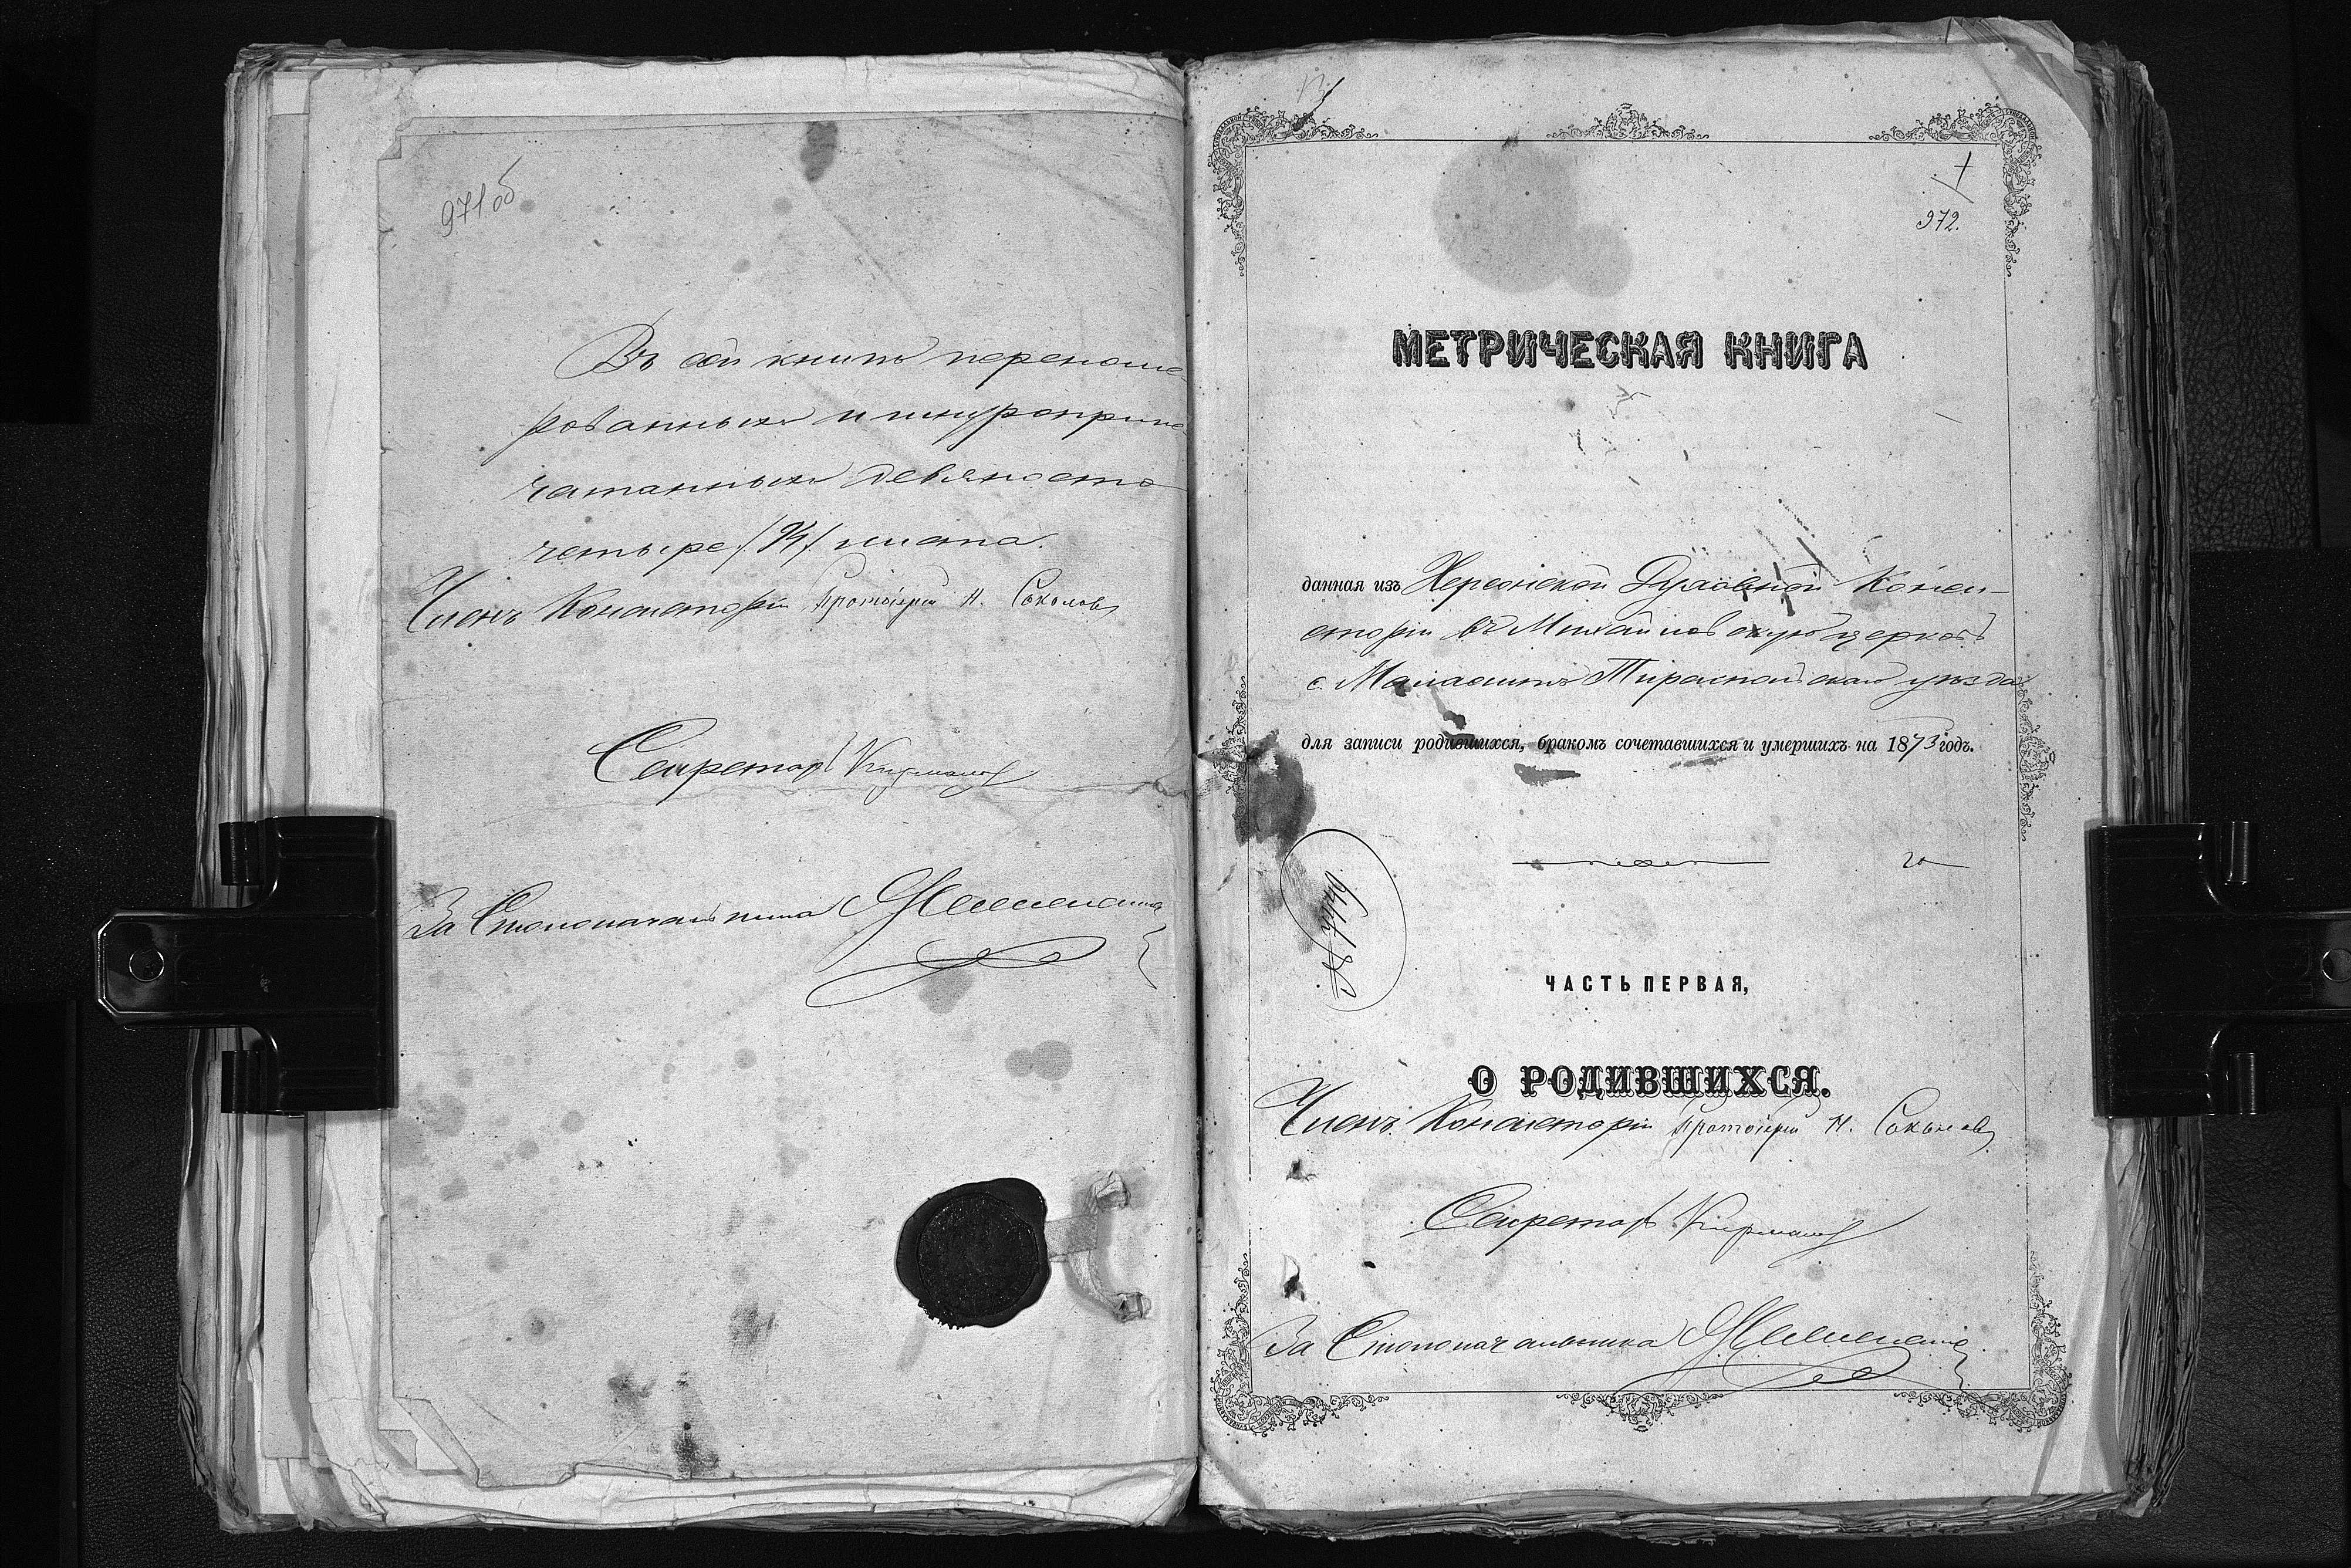 971об
Въ сей книгѣ перенуме-
рованныхъ и шнуроприпе-
чатанныхъ девяносто
четыре /94/ листа.
Членъ Консисторіи Протоіерей Н. Соколовъ
Секретарь
За Столоначальника
972.
МЕТРИЧЕСКАЯ КНИГА
данная изъ Херсонской Духовной Конси-
сторіи въ Михайловскую церковь
с. Малаешты Тираспольскаго уѣзда
для записи родившихся, бракомъ сочетавшихся и умершихъ на 1873 годъ.
ЧАСТЬ ПЕРВАЯ,
О РОДИВШИХСЯ.
Членъ Консисторіи Протоіерей Н. Соколовъ
Секретарь
За Столоначальника